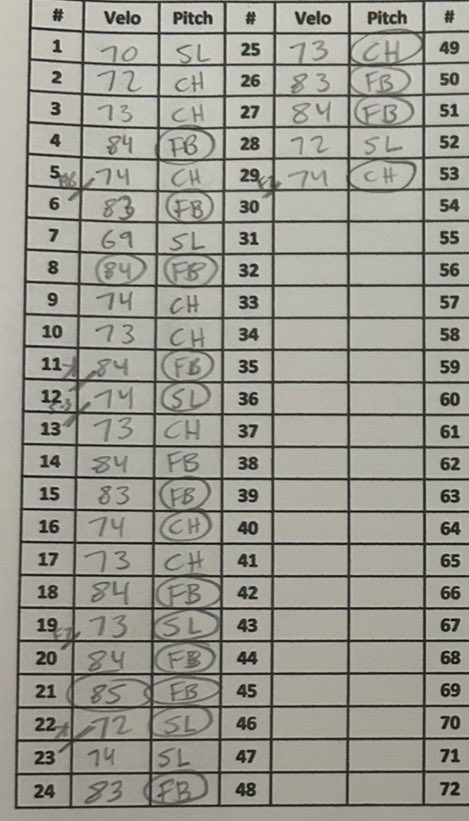 # Velo Pitch # Velo Pitch #
1 70 SL 25 73 CH 49
2 72 CH 26 83 FB 50
3 73 CH 27 84 FB 51
4 84 FB 28 72 SL 52
5 74 CH 29 74 CH 53
6 83 FB 30 54
7 69 SL 31 55
8 84 FB 32 56
9 74 CH 33 57
10 73 CH 34 58
11 84 FB 35 59
12 74 SL 36 60
13 73 CH 37 61
14 84 FB 38 62
15 83 FB 39 63
16 74 CH 40 64
17 73 CH 41 65
18 84 FB 42 66
19 73 SL 43 67
20 84 FB 44 68
21 85 FB 45 69
22 72 SL 46 70
23 74 SL 47 71
24 83 FB 48 72